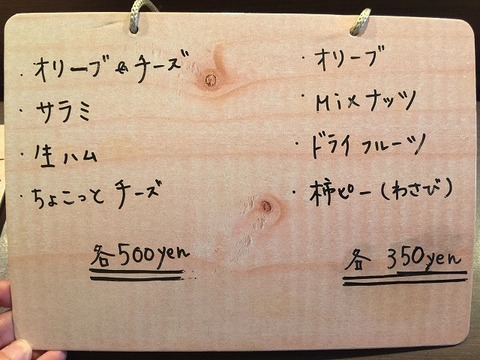 ・オリーブ&チーズ
・サラミ
・生ハム
・ちょこっとチーズ
各500yen
・オリーブ
・Mixナッツ
・ドライフルーツ
・柿ピー(わさび)
各 350yen